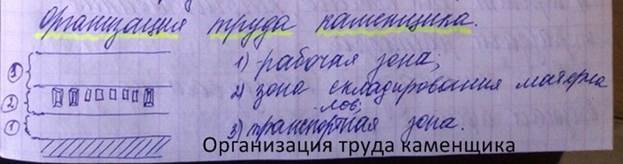 Организация труда каменщика.
1) рабочая зона;
2) зона складирования материа
лов;
3) транспортная зона.
3
2
1
Организация труда каменщика